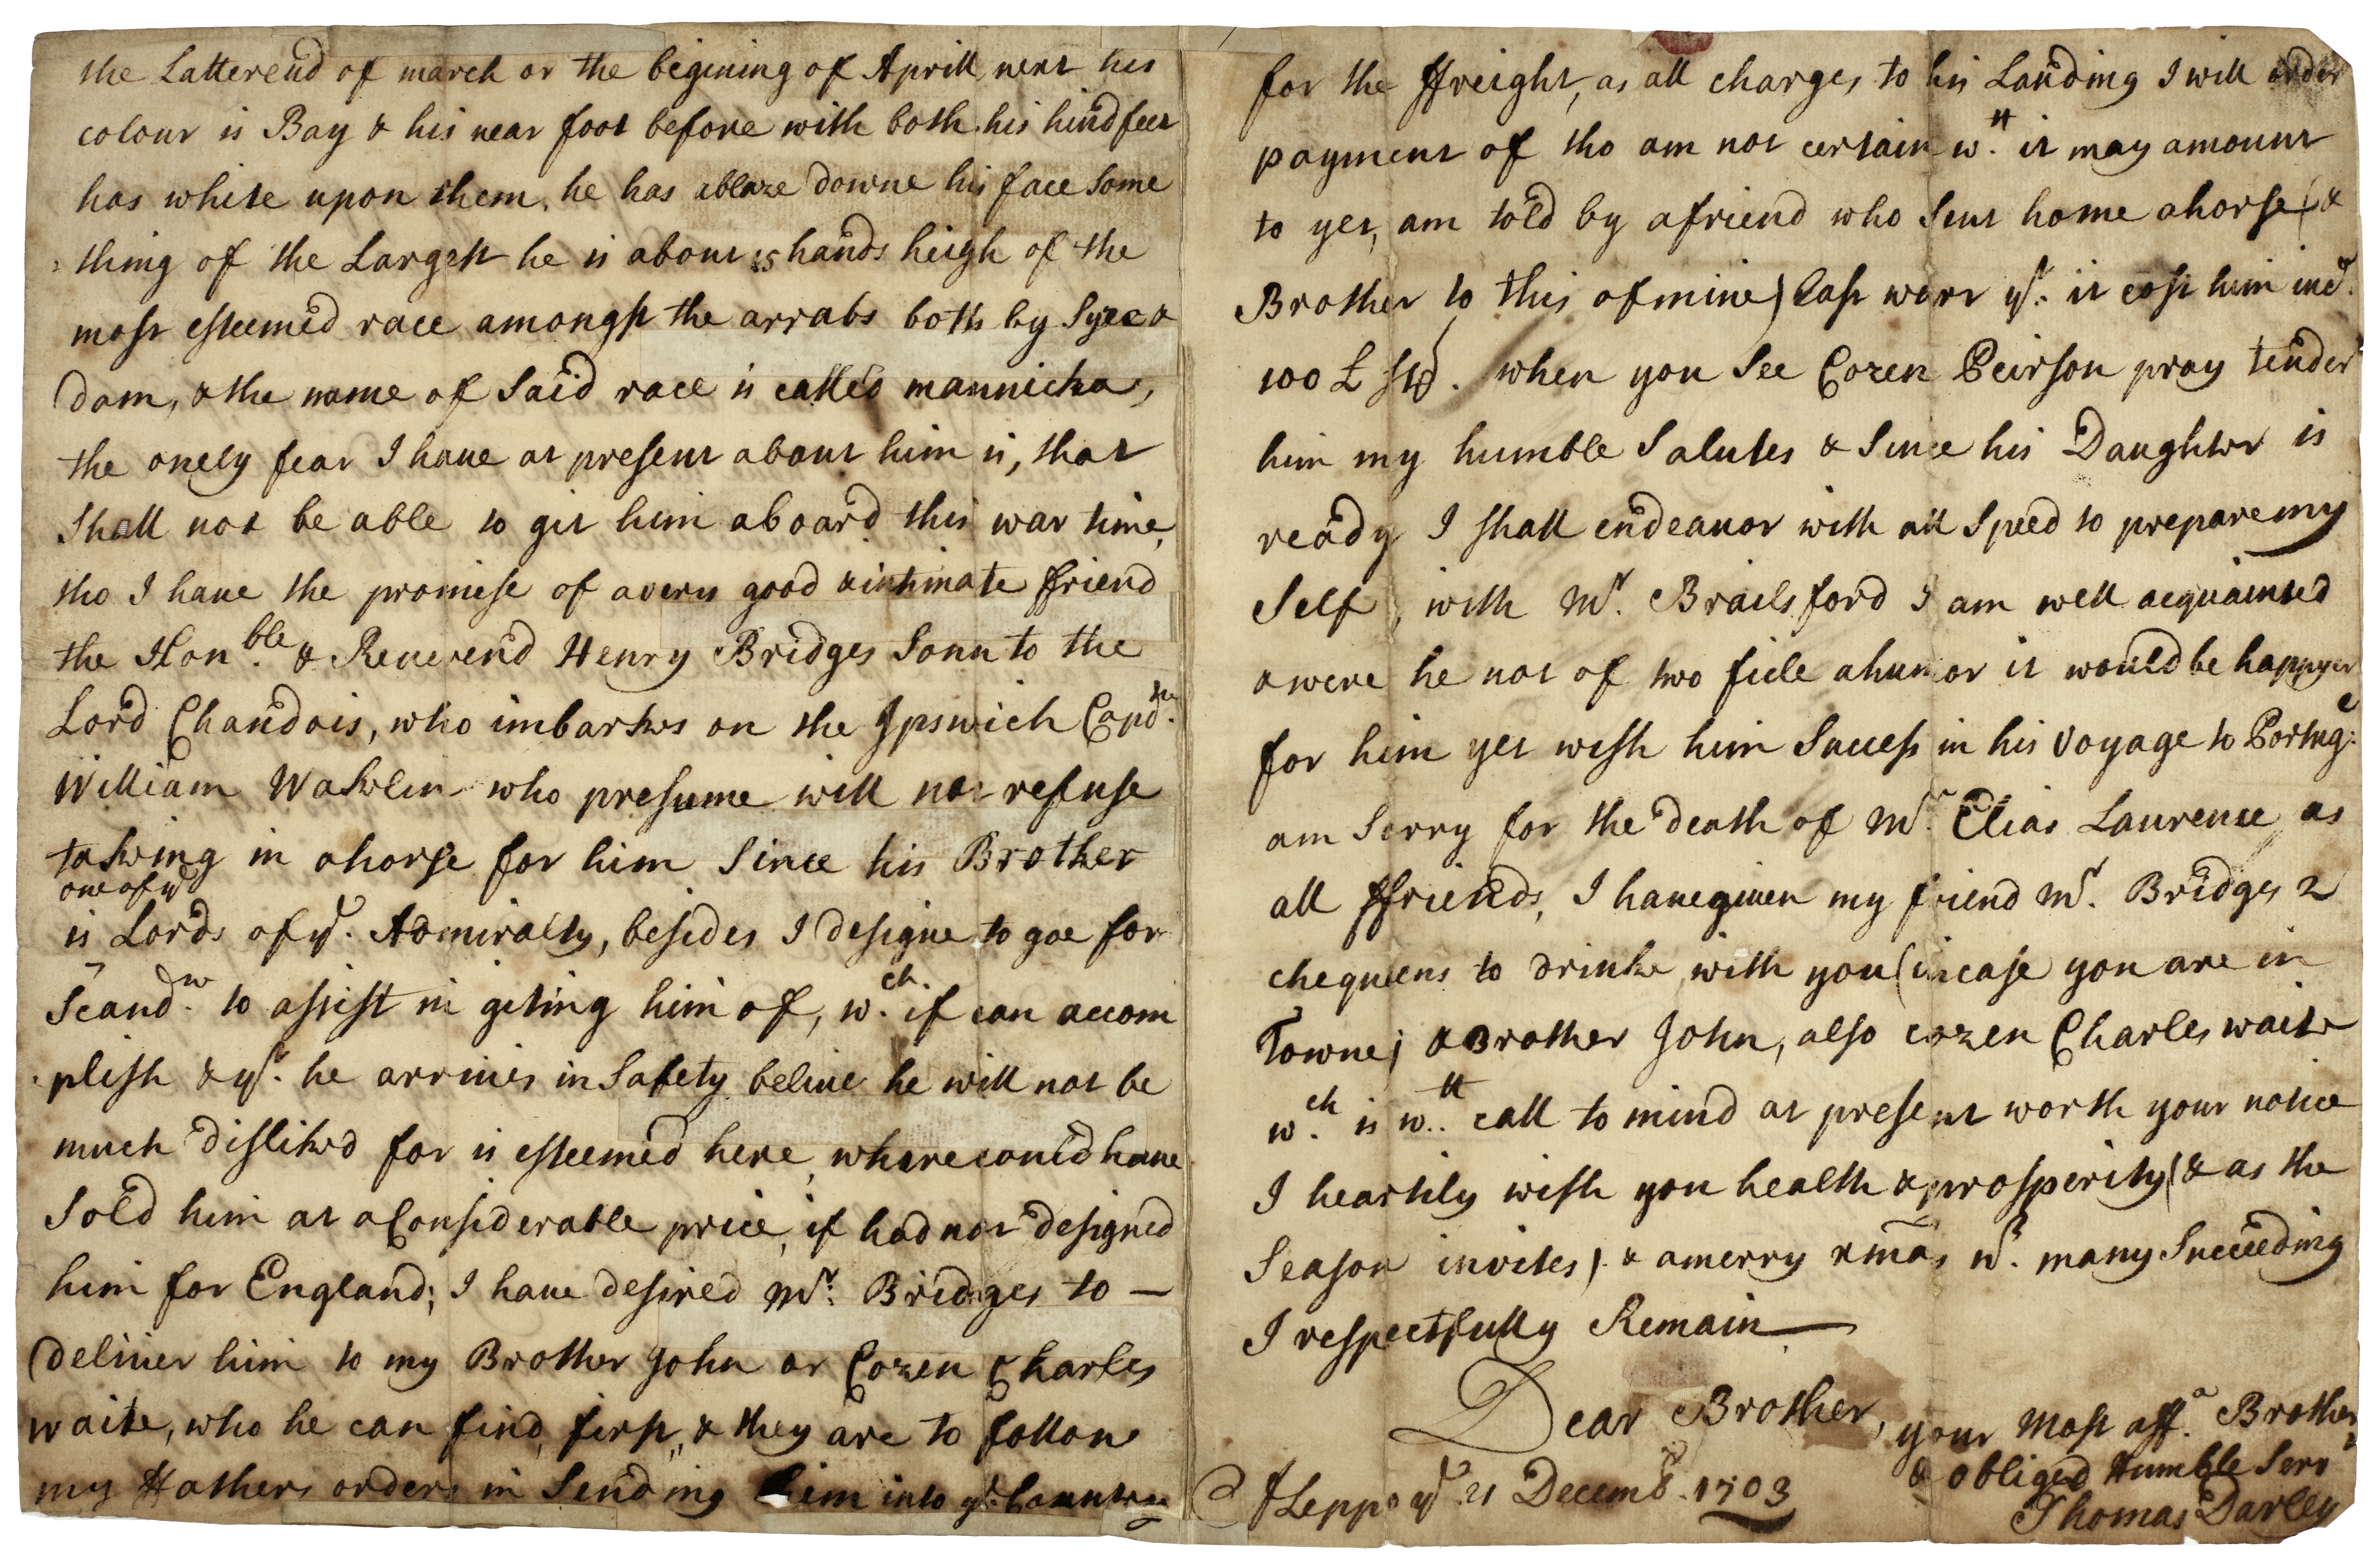 the Latterend of march or the begining of Aprill next his
colour is Bay & his near foot before with both his hind feet
has white upon them, he has ablaze downe his face Some
thing of the Largest he is about 15 hands heigh of the
most esteemed race amongst the arrabs both by Syre &
Dam, & the name of Said race is called mannicka,
the onely fear I haue at present about him is, that
Shall not be able to git him aboard this war time,
tho I haue the promise of a very good & intimate ffriend
the Hon.ble & Reuerend Henry Bridges Sonn to the
Lord Chandois, who imbarkes on the Ipswich Capt.ne
William Waklin who presume will not refuse
takeing in a horse for him Since his Brother
one of ye
is Lords of ye. Admiralty, besides I designe to goe for
Scand.n to assist in giting him of, w.ch if can accom
plish & yt. he arriues in Safety beliue he will not be
much disliked for is esteemed here, where could haue
Sold him at a Considerable price, if had not designed
him for England; I haue desired Mr. Bridges to —
deliuer him to my Brother John or Cozen Charles
waite, who he can find first, & they are to follow
my ffathers orders in Sending him into ye. Countrey
for the ffreight, as all charges to his Landing I will order
payment of tho am not certain w.tt it may amount
to yet, am told by a friend who Sent home a horse (&
Brother to this of mine) last warr yt. it cost him ind.
100 £ Str. when you See Cozen Peirson pray tender
him my humble Salutes & Since his Daughter is
ready I shall endeauor with all Speed to prepare my
Self, with Mr. Brailsford I am well acquainted
& were he not of two ficle a humor it would be happyer
for him yet wish him Success in his Voyage to Portug:
am Sorry for the death of Mr. Elias Laurence as
all ffriends, I haue giuen my friend Mr. Bridges 2
chequeens to drinke with you (incase you are in
Towne) & Brother John, also cozen Charles waite
w.ch is w.tt call to mind at present worth your notice
I heartily wish you health & prosperity (& as the
Season invites) & a merry xmas wt. many Succeeding
I respectfully Remain
Dear Brother, your Most aff.a Brother
& obliged Humble Serv.t
Aleppo ye 21 Decemb. 1703
Thomas Darley